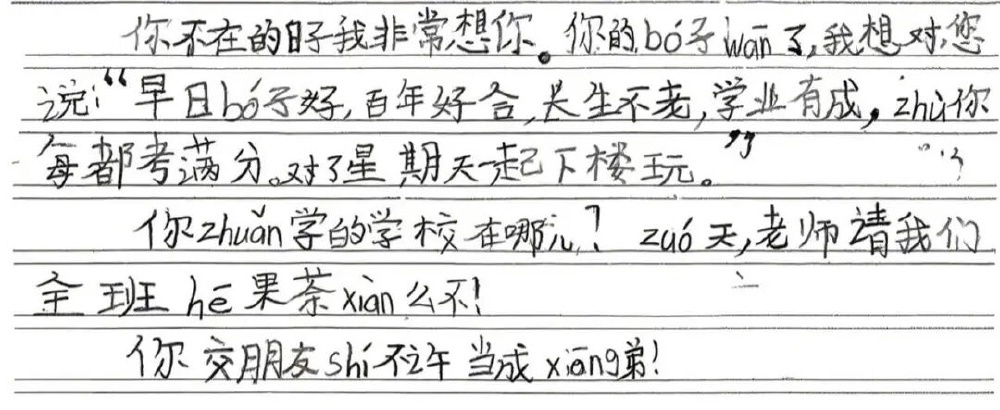 你不在的日子我非常想你。你的bó子wān了,我想对您
说:“早日bó子好,百年好合,长生不老,学业有成,zhù你
每都考满分。对了星期天一起下楼玩。”
你zhuǎn学的学校在哪儿? zuó天,老师请我们
全班hē果茶xiàn么不!
你交朋友shí不许当成xiōng弟!